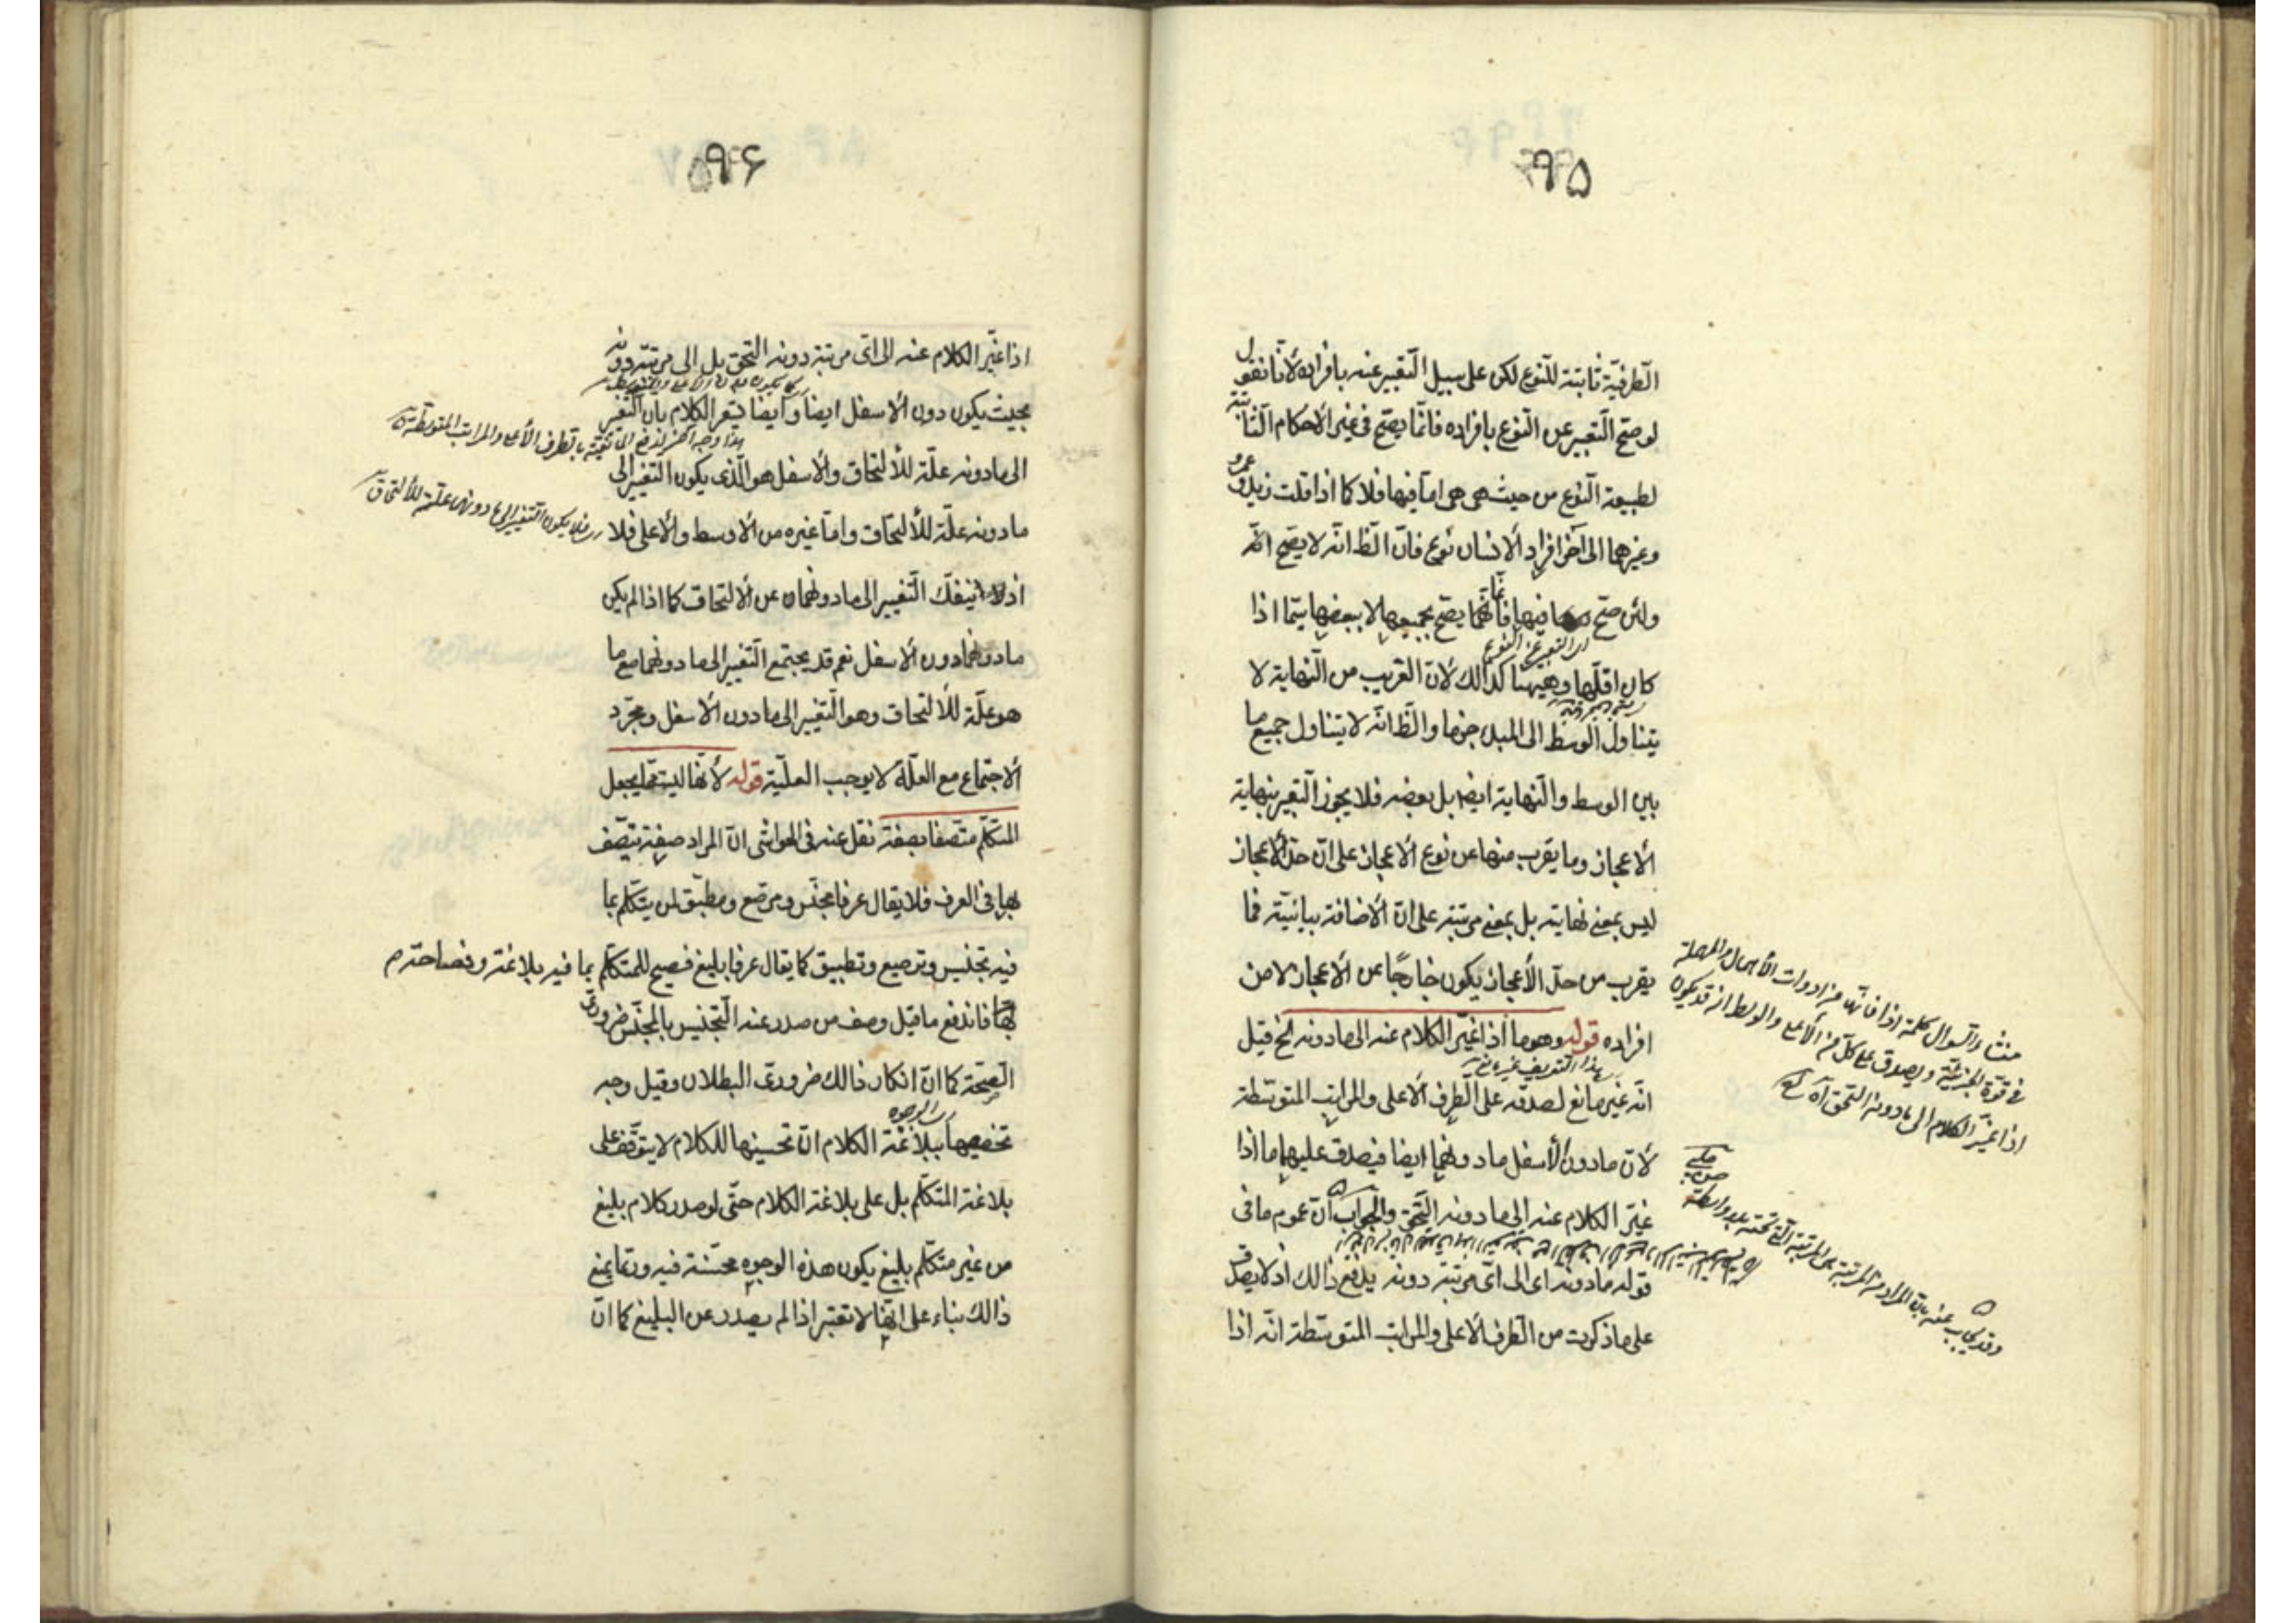 ۹۵
الطرفية ثابتة للنوع لكن على سبيل التعبير عنه بافراده لأنا نقول
لو صح التعبير عن النوع بافراده فانما يصح فى غير الاحكام الثابتة
لطبيعة النوع من حيث هى هى اما فيها فلا كما اذا قلت زيد وعمرو
وغيرهما الى آخر افراد الانسان نوع فان الظ انه لا يصح انه
ولئن صح فيها فانما يصح بجميعها لا ببعضها سيما اذا
اى التعبير عن النوع
كان اقلها وهيهنا كذالك لأن القريب من النهاية لا
يتناول الوسط الى المبدء جزما والظ انه لا يتناول جميع ما
بين الوسط والنهاية ايضا بل بعضه فلا يجوز التعبير بنهاية
الاعجاز وما يقرب منها عن نوع الاعجاز على ان حد الاعجاز
ليس بمعنى نهايته بل بمعنى مرتبته على ان الاضافة بيانية فما
يقرب من حد الأعجاز يكون خارجًا عن الاعجاز لا من
افراده قوله وهو ما اذا غير الكلام عنه الى ما دونه الخ قيل
انه غير مانع لصدقه على الطرف الاعلى والمراتب المتوسطة
لأن ما دون الأسفل ما دونهما ايضا فيصدق عليهما ما اذا
غير الكلام عنه الى ما دونه التحق والجواب ان عموم ما فى
قوله ما دونه اى الى اى مرتبة دونه يدفع ذالك اذ لا يصدق
على ما ذكرت من الطرف الاعلى والمراتب المتوسطة انه اذا
منشاء السوال كلمة اذا فانها من ادوات الأهمال والمهملة
فى قوة الجزئية ويصدق على كل من الأعلى والوسط انه قد يكون
اذا غير الكلام الى ما دونه التحق آه
وقد يجاب عنه بان المراد من المرتبة هى المرتبة التى تحته بلا واسطة
۹۶
اذا غير الكلام عنه الى اى مرتبة دونه التحق بل الى مرتبة دونه
بحيث يكون دون الاسفل ايضا وايضا يشعر الكلام بان التغير
الى ما دونه علة للألتحاق والاسفل هو الذى يكون التغيير الى
ما دونه علة للألتحاق واما غيره من الاوسط والاعلى فلا
فلا يكون التغير الى ما دونهما علة للألتحاق
اذ ينفك التغيير الى ما دونهما عن الالتحاق كما اذا لم يكن
ما دونهما دون الاسفل نعم قد يجتمع التغيير الى ما دونهما مع ما
هو علة للألتحاق وهو التغيير الى ما دون الاسفل ومجرد
الاجتماع مع العلة لا يوجب العلية قوله لأنها ليست مما يجعل
المتكلم متصفا بصفة نقل عنه فى الحواشى ان المراد صفة يتصف
بها فى العرف فلا يقال عرفا مجنس ومرصع ومطبق لمن يتكلم بما
فيه تجنيس وترصيع وتطبيق كما يقال عرفا بليغ فصيح للمتكلم بما فيه بلاغة وفصاحة
فاندفع ما قيل وصف من صدر عنه التجنيس بالمجنس ضرورى
الصحة كما ان انكار ذالك ضرورى البطلان وقيل وجه
اى الوجوه
تخصيصها ببلاغة الكلام ان تحسينها للكلام لا يتوقف على
بلاغة المتكلم بل على بلاغة الكلام حتى لو صدر كلام بليغ
من غير متكلم بليغ يكون هذه الوجوه محسنة فيه وربما يمنع
ذالك بناء على انها لا تعتبر اذا لم يصدر عن البليغ كما ان